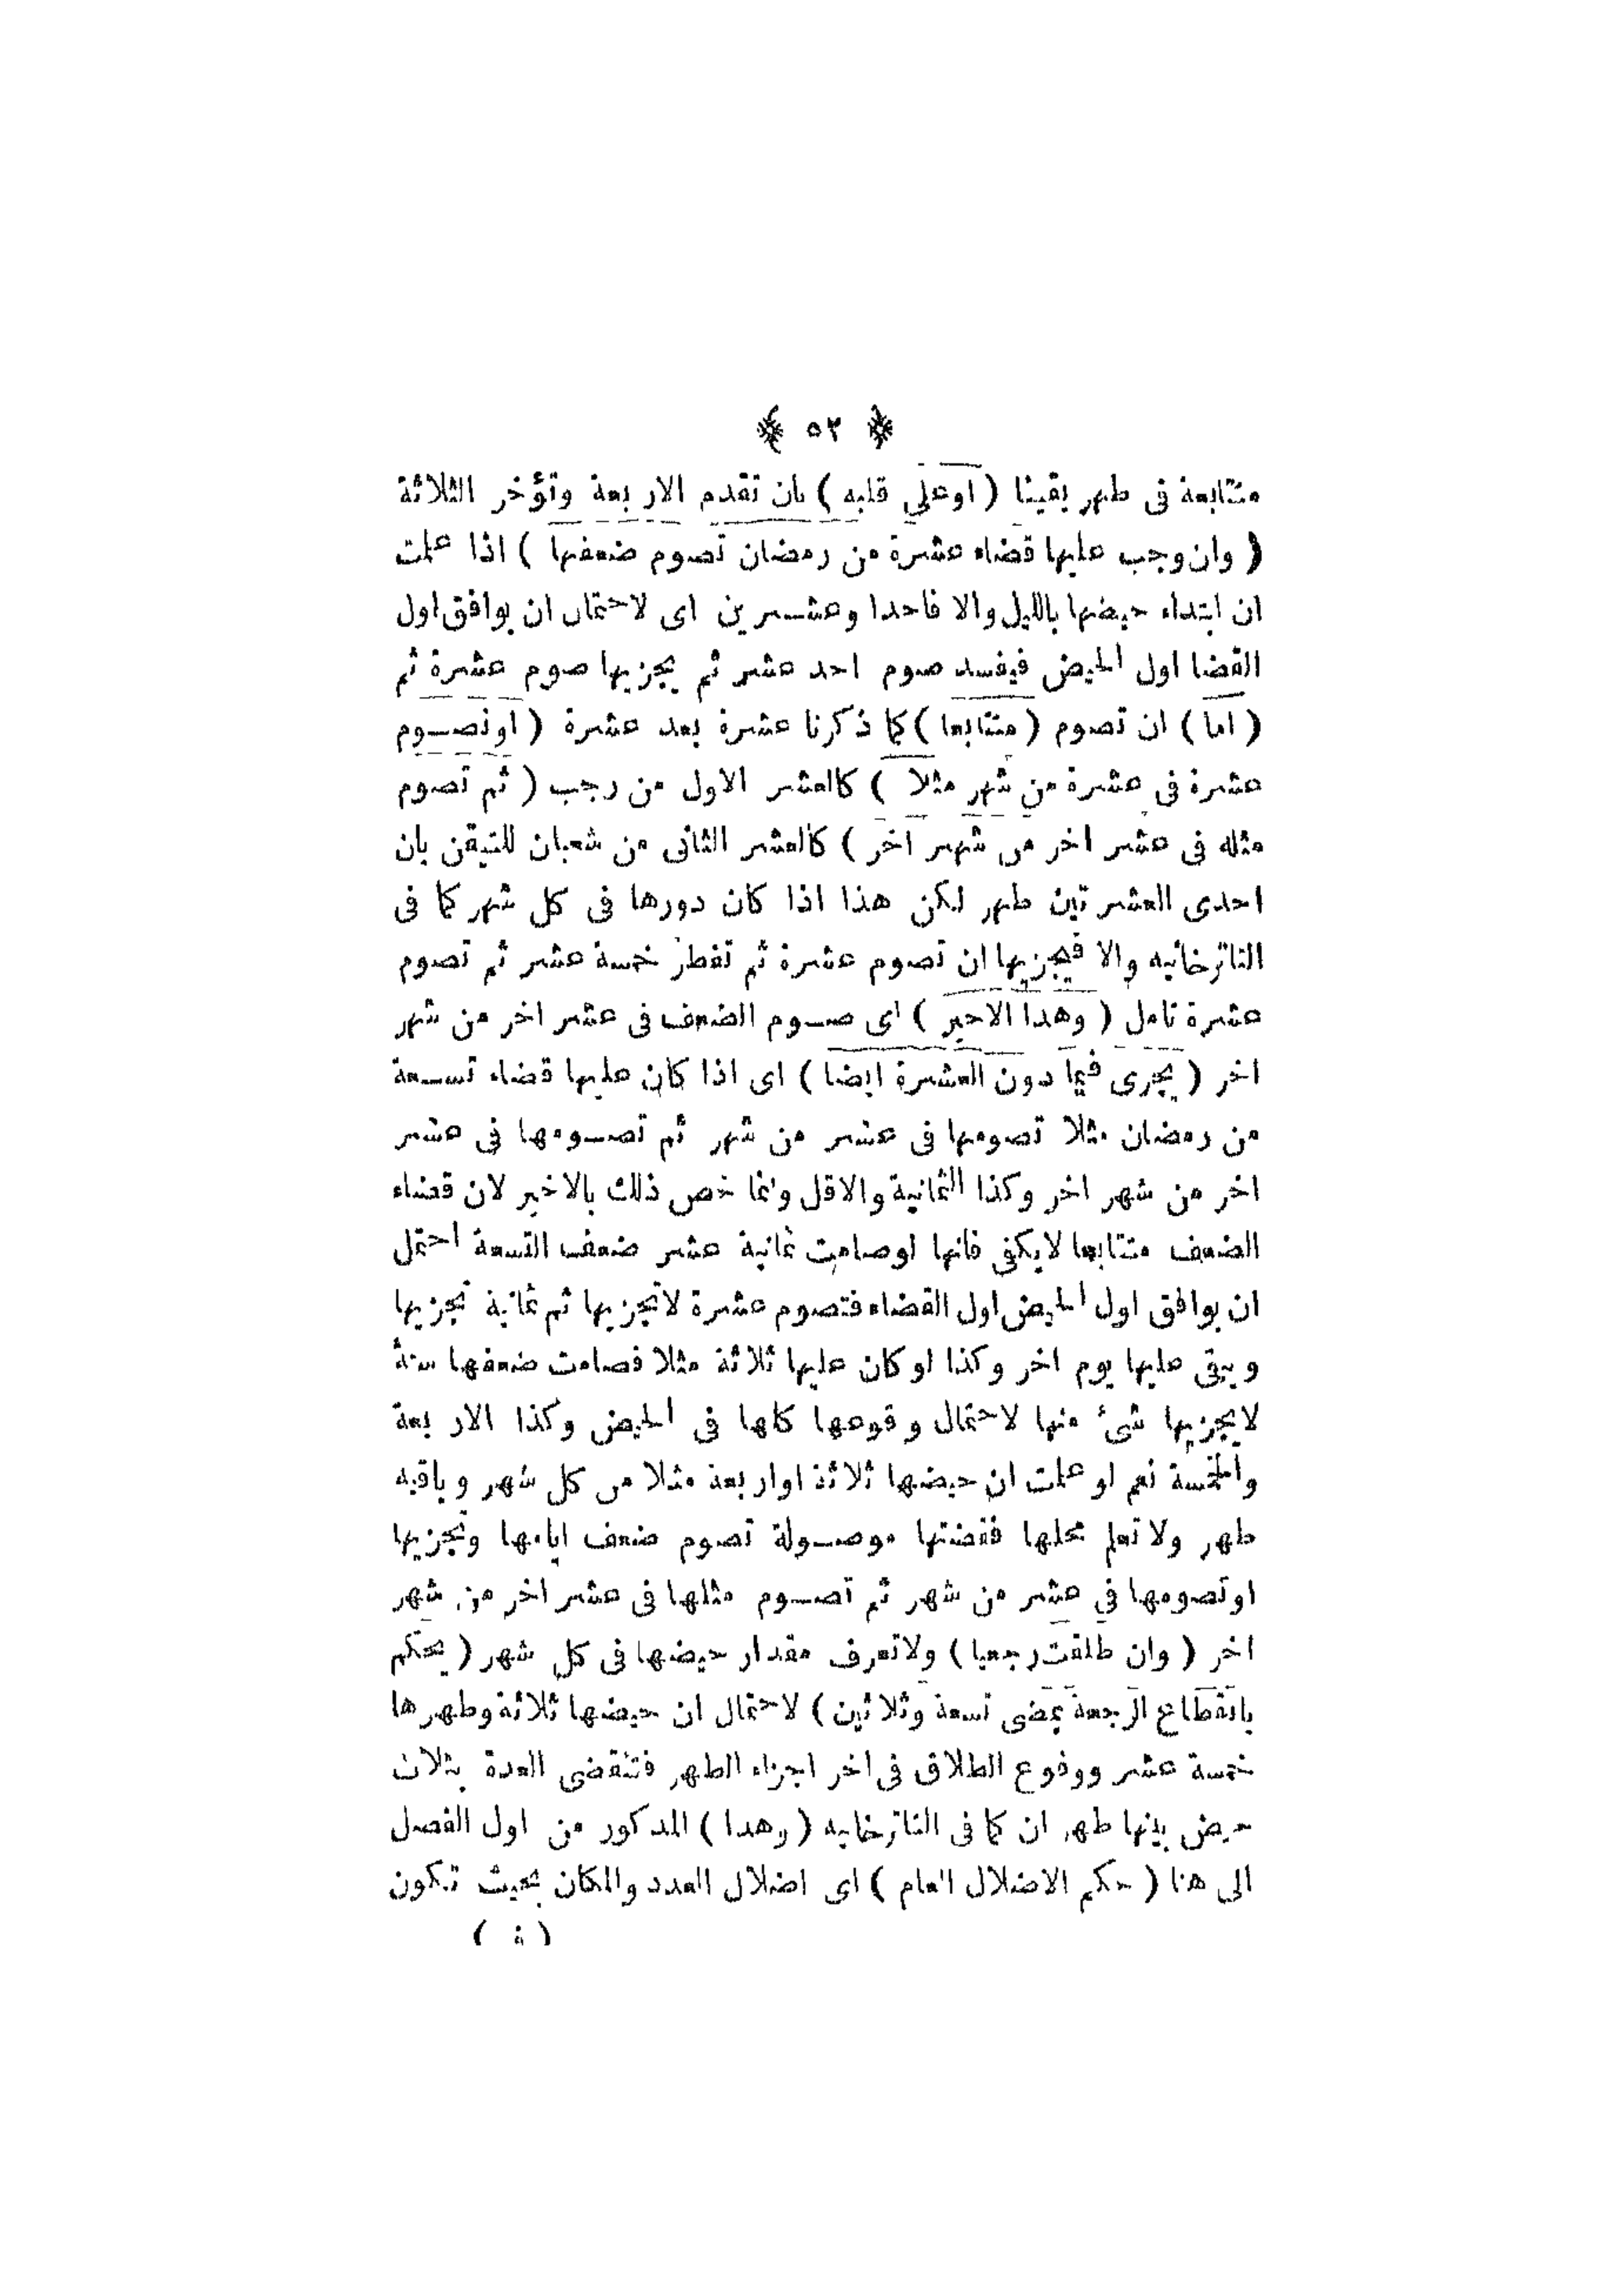 ﴿ ٥٢ ﴾
متتابعة فى طهر يقينا ( اوعلى قلبه ) بان تقدم الاربعة وتؤخر الثلاثة
( وان وجب عليها قضاء عشرة من رمضان تصوم ضعفها ) اذا علمت
ان ابتداء حيضها بالليل والا فاحدا وعشرين اى لاحتمال ان يوافق اول
القضا اول الحيض فيفسد صوم احد عشر ثم يجزيها صوم عشرة ثم
( اما ) ان تصوم ( متتابعا ) كما ذكرنا عشرة بعد عشرة ( اوتصوم
عشرة فى عشرة من شهر مثلا ) كالعشر الاول من رجب ( ثم تصوم
مثله فى عشر اخر من شهر اخر ) كالعشر الثانى من شعبان للتيقن بان
احدى العشرتين طهر لكن هذا اذا كان دورها فى كل شهر كما فى
التاترخانيه والا فيجزيها ان تصوم عشرة ثم تفطر خمسة عشر ثم تصوم
عشرة تامل ( وهذا الاخير ) اى صوم الضعف فى عشر اخر من شهر
اخر ( يجرى فيما دون العشرة ايضا ) اى اذا كان عليها قضاء تسعة
من رمضان مثلا تصومها فى عشر من شهر ثم تصومها فى عشر
اخر من شهر اخر وكذا الثمانية والاقل وانما خص ذلك بالاخير لان قضاء
الضعف متتابعا لايكفى فانها لوصامت ثمانية عشر ضعف التسعة احتمل
ان يوافق اول الحيض اول القضاء فتصوم عشرة لاتجزيها ثم ثمانية تجزيها
ويبقى عليها يوم اخر وكذا لو كان عليها ثلاثة مثلا فصامت ضعفها ستة
لايجزيها شئ منها لاحتمال وقوعها كلها فى الحيض وكذا الاربعة
والخمسة نعم لو علمت ان حيضها ثلاثة اواربعة مثلا من كل شهر وباقيه
طهر ولا تعلم محلها فقضتها موصولة تصوم ضعف ايامها وتجزيها
اوتصومها فى عشر من شهر ثم تصوم مثلها فى عشر اخر من شهر
اخر ( وان طلقت رجعيا ) ولاتعرف مقدار حيضها فى كل شهر ( يحكم
بانقطاع الرجعة بمضى تسعة وثلاثين ) لاحتمال ان حيضها ثلاثة وطهرها
خمسة عشر ووقوع الطلاق فى اخر اجزاء الطهر فتنقضى العدة بثلاث
حيض بينها طهران كما فى التاترخانيه ( وهذا ) المذكور من اول الفصل
الى هنا ( حكم الاضلال العام ) اى اضلال العدد والمكان بحيث تكون